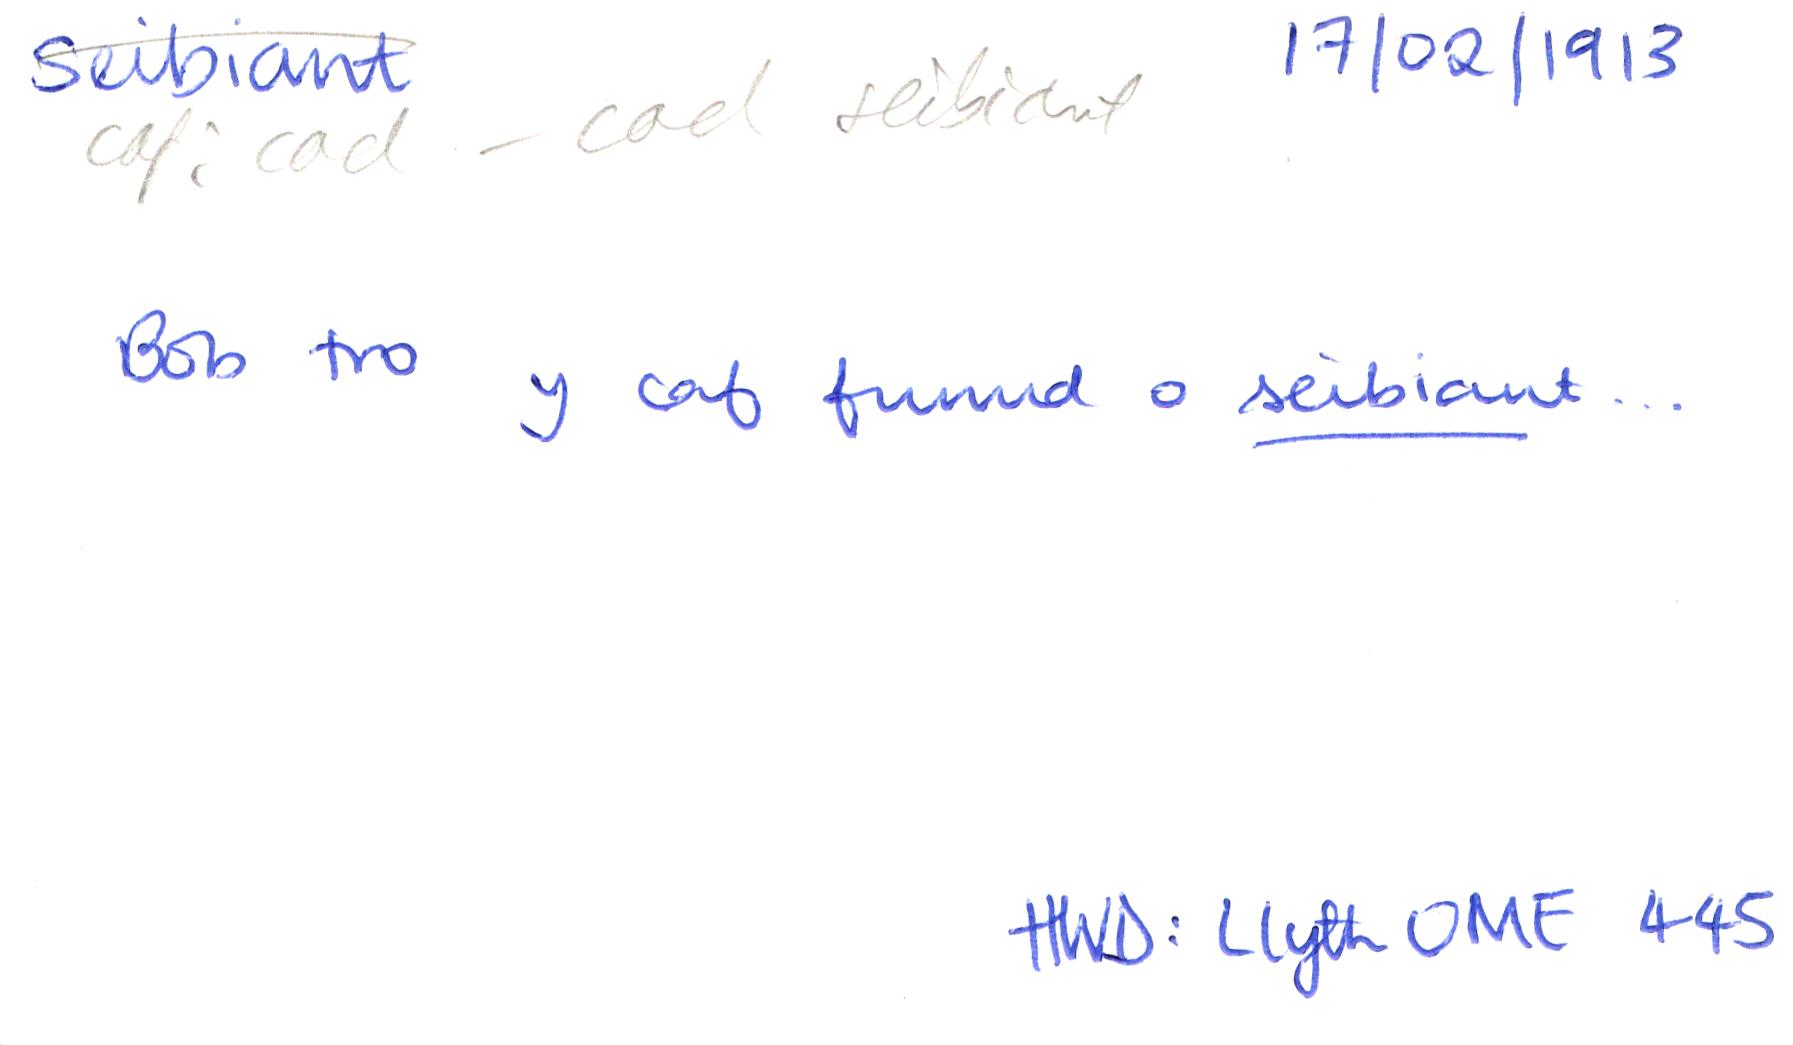 seibiant 17/02/1913
caf: cad – cad seibiant
Bob tro y caf funud o seibiant...
HWD: Llyth OME 445